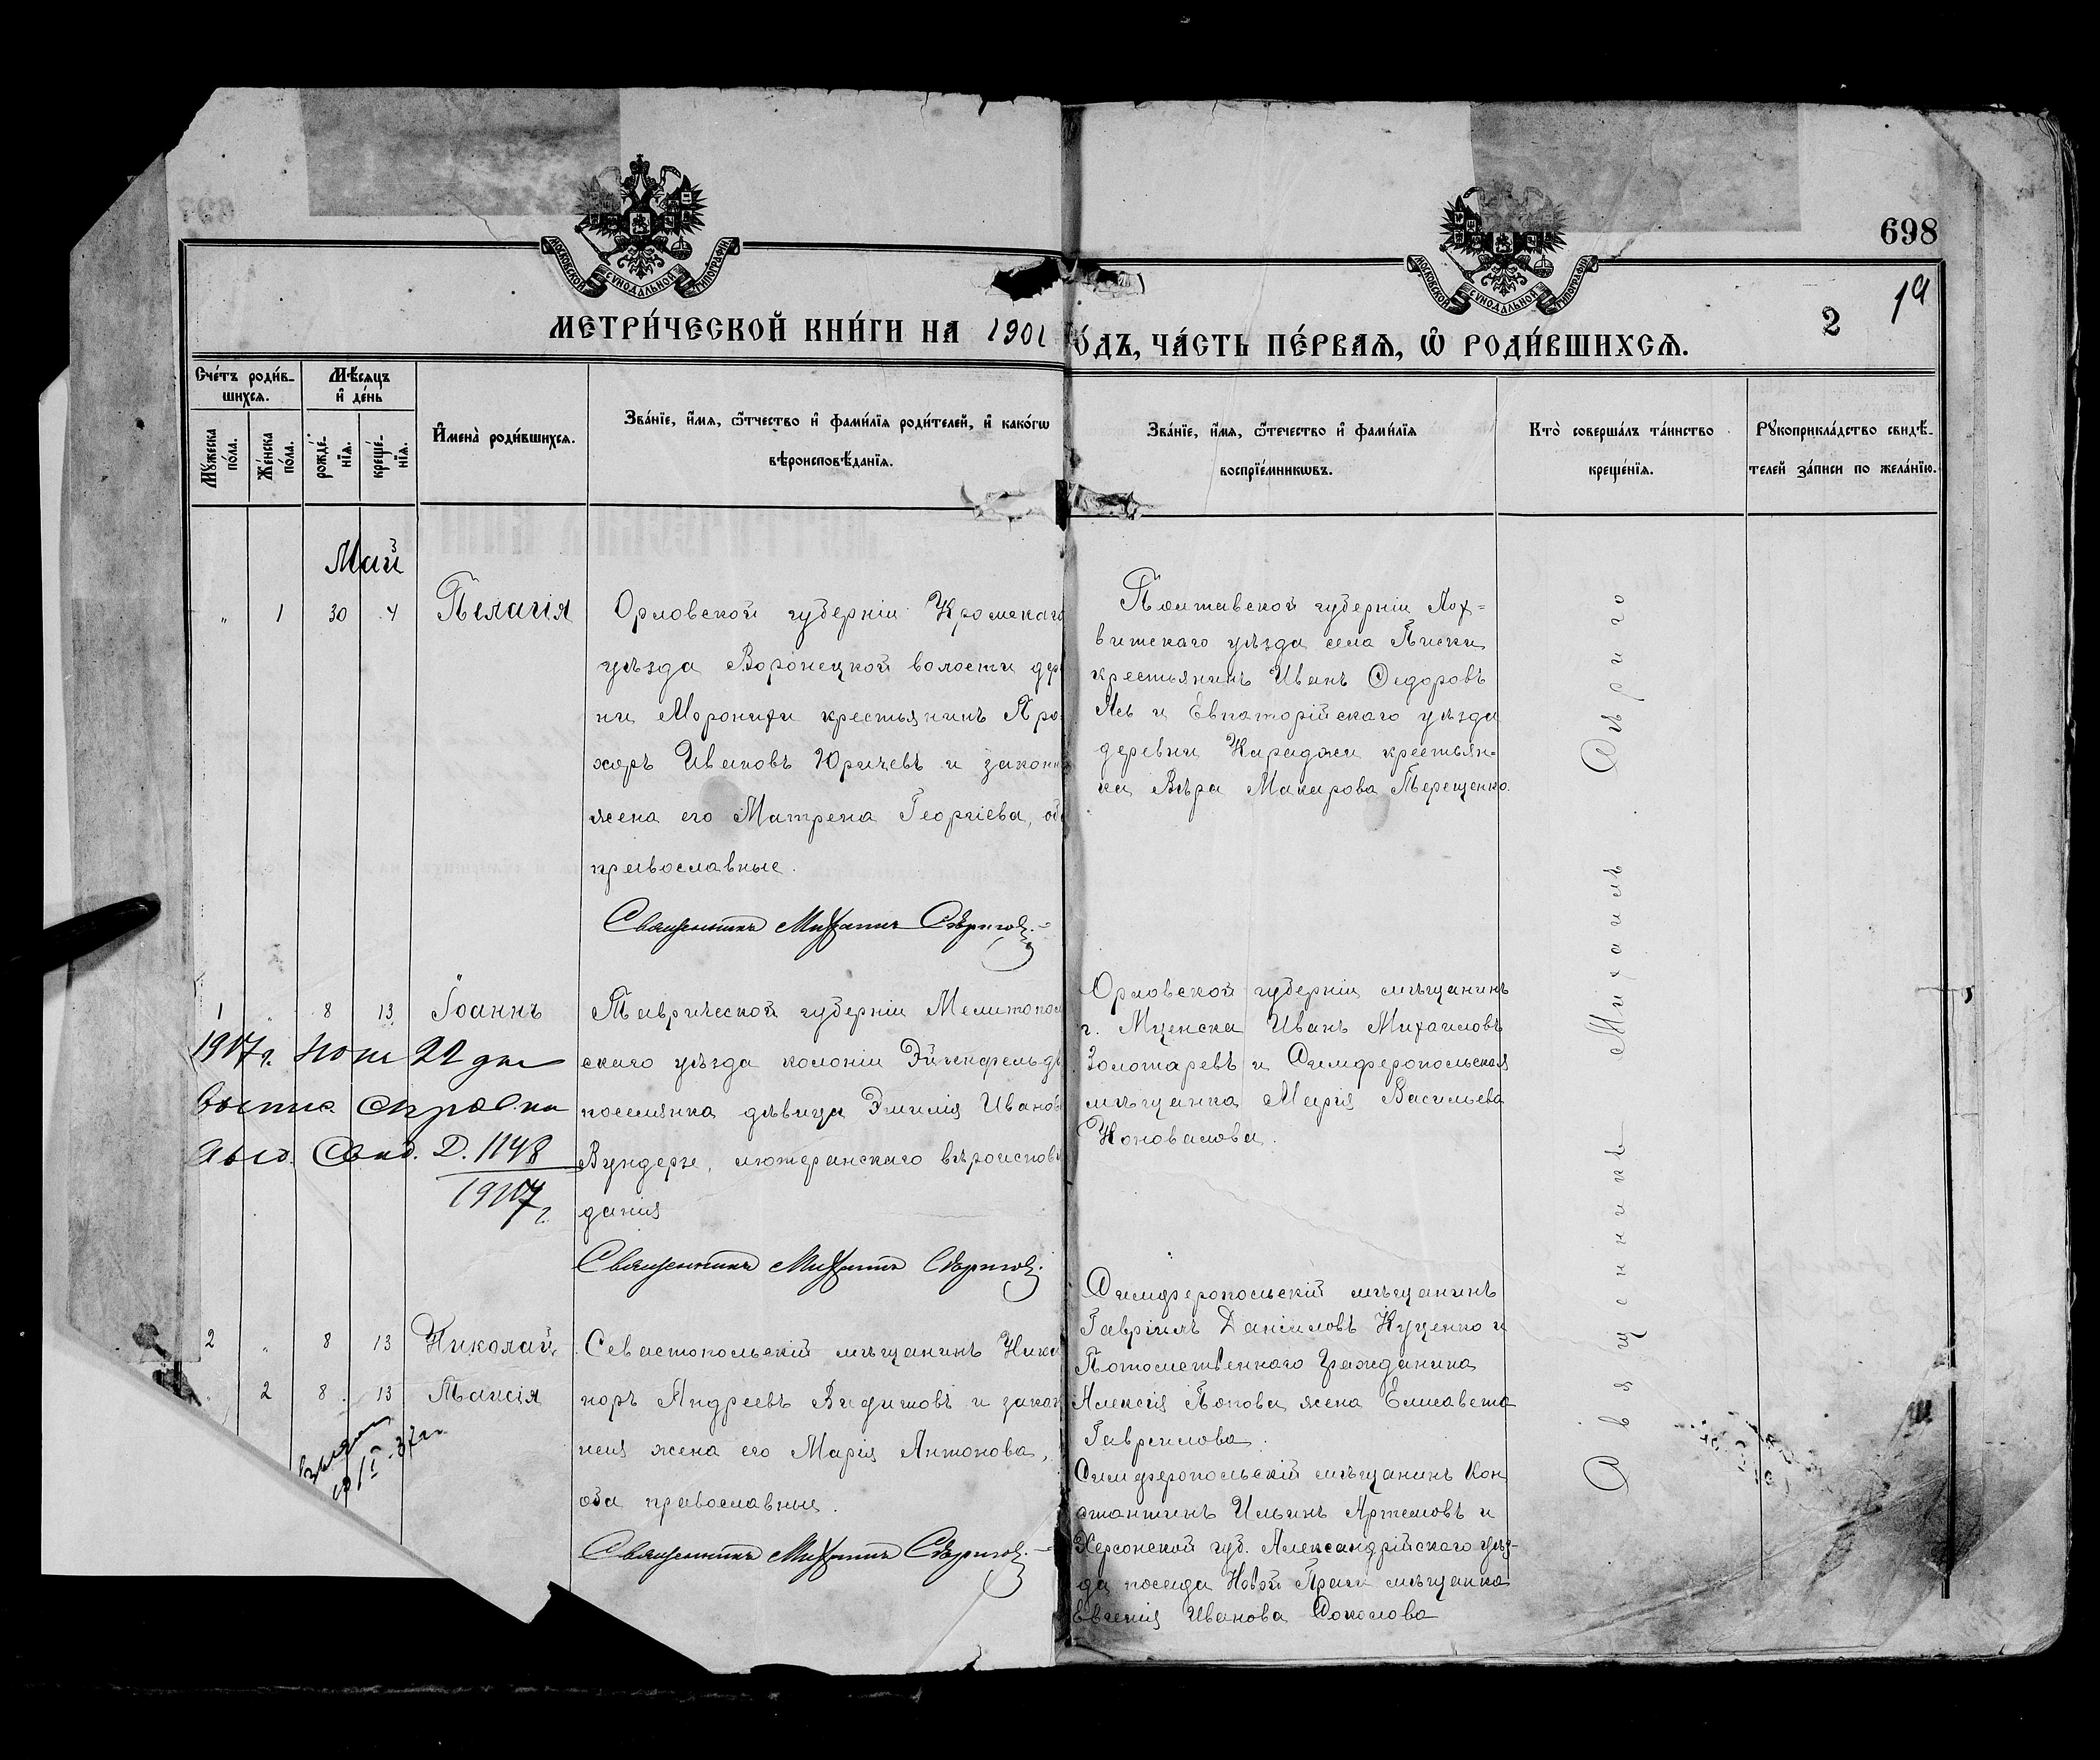 698
МОСКОВСКОЙ СѴНОДАЛЬНОЙ ТИПОГРАФІИ
МОСКОВСКОЙ СѴНОДАЛЬНОЙ ТИПОГРАФІИ
2
МЕТРИ́ЧЕСКОЙ КНИ́ГИ НА 1901
ГО́ДЪ, ЧА́СТЬ ПЕ́РВАѦ, Ѡ҆ РОДИ́ВШИХСѦ.
Сче́тъ роди́в-
шихсѧ.
Мѣ́сѧцъ
и҆ де́нь
Мꙋ́жеска
по́ла.
Же́нска
по́ла.
рожде́-
нїѧ.
креще́-
нїѧ.
И҆мена̀ роди́вшихсѧ.
Зва́нїе, и҆́мѧ, ѻ҆́тчество и҆ фами́лїѧ роди́телей, и҆ како́гѡ
вѣроисповѣ́данїѧ.
Зва́нїе, и҆́мѧ, ѻ҆́течество и҆ фами́лїѧ
воспрїе́мникѡвъ.
Кто̀ соверша́лъ та́инство
креще́нїѧ.
Рꙋкоприкла́дство свидѣ́-
телей за́писи по жела́нїю.
Май
" 1 30 4 Пелагія
Орловской губерніи Кромскаго
уѣзда Воронецкой волости дер
ни крестьянинъ Про-
хоръ Ивановъ Юричевъ и законн
жена его Матрена Георгіева, об
православные.
Священникъ Михаилъ
Полтавской губерніи Лох-
витскаго уѣзда села Писки
крестьянинъ Иванъ Ѳедоровъ
и Евпаторійскаго уѣзда
деревни Караджи крестьян-
ка Вѣра Макарова Терещенко.
1 " 8 13 Іоаннъ
1917 г. 22 дня
справка
Д. 1148
1917 г.
Таврической губерніи Мелитопол
скаго уѣзда колоніи Эйгенфельдъ
поселянка дѣвица Эмилія Иванов
Вундерзе, лютеранскаго вѣроиспов
данія
Священникъ Михаилъ
Орловской губерніи мѣщанинъ
г. Мценска Иванъ Михаиловъ
Золотаревъ и Симферопольская
мѣщанка Марія Васильева
Коновалова.
2 " 8 13 Николай
2 8 13 Таисія
Севастопольскій мѣщанинъ Ника
норъ Андреевъ и закон
ная жена его Марія Антонова,
оба православные.
Священникъ Михаилъ
Симферопольскій мѣщанинъ
Гавріилъ Даніиловъ Куценко и
Потомственнаго Гражданина
Алексія Попова жена Елисавета
Гавріилова.
Симферопольскій мѣщанинъ Кон
стантинъ Ильинъ Артемовъ и
Херсонской губ. Александрійскаго уѣз-
да посада Новой Праги мѣщанка
Евгенія Иванова Соколова
Священникъ Михаилъ